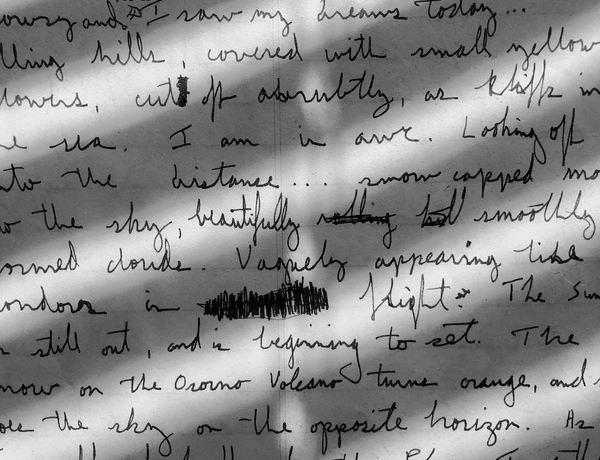 and I saw my dreams today...
lling hills, covered with small yellow
lowers, cut off abrubtly, as kliffs in
he sea. I am in awe. Looking off
nto the distance... snow capped mo
the sky, beautifully smoothly
ormed clouds. Vaguely appearing like
ondors in flight. The Sun
s still out, and is beginning to set. The
now on the Osorno Volcano turns orange, and s
oes the sky on the opposite horizon. As